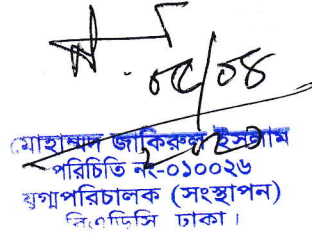 ০৫/০৪
মোহাম্মদ জাকিরুল ইসলাম
পরিচিতি নং-০১০০২৬
যুগ্মপরিচালক (সংস্থাপন)
বিএডিসি ঢাকা।